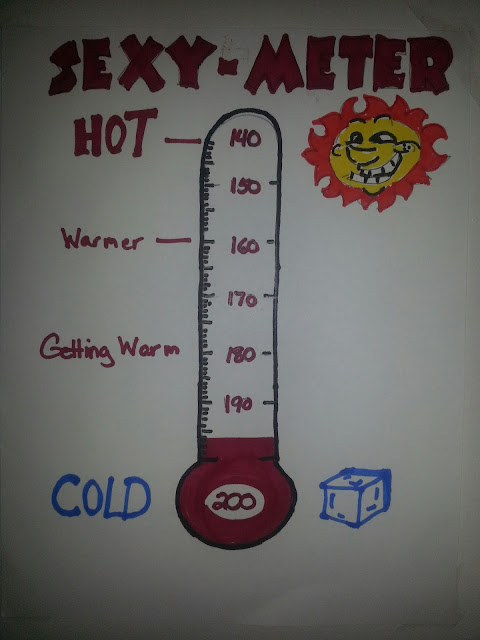 SEXY-METER
HOT
140
150
Warmer
160
170
Getting Warm
180
190
COLD
200